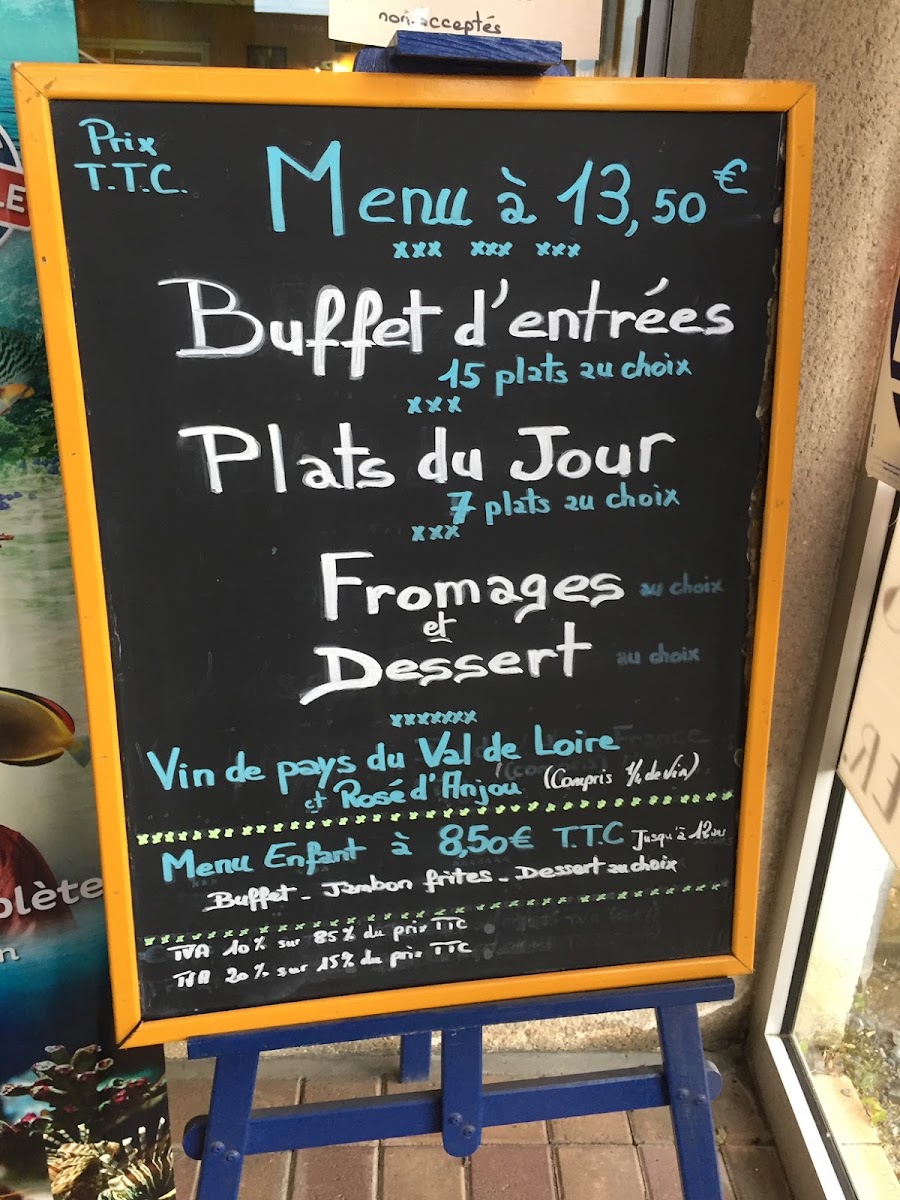 non acceptés
Prix
T.T.C.
Menu à 13,50 €
xxx xxx xxx
Buffet d'entrées
15 plats au choix
xxx
Plats du Jour
7 plats au choix
xxx
Fromages au choix
et
Dessert au choix
xxxxxxx
Vin de pays du Val de Loire
et Rosé d'Anjou (Compris 1/4 de Vin)
Menu Enfant à 8,50€ T.T.C Jusqu'à 12 ans
Buffet - Jambon frites - Dessert au choix
TVA 10% sur 85% du prix TTC
TVA 20% sur 15% du prix TTC
LE
plète
n
ER.